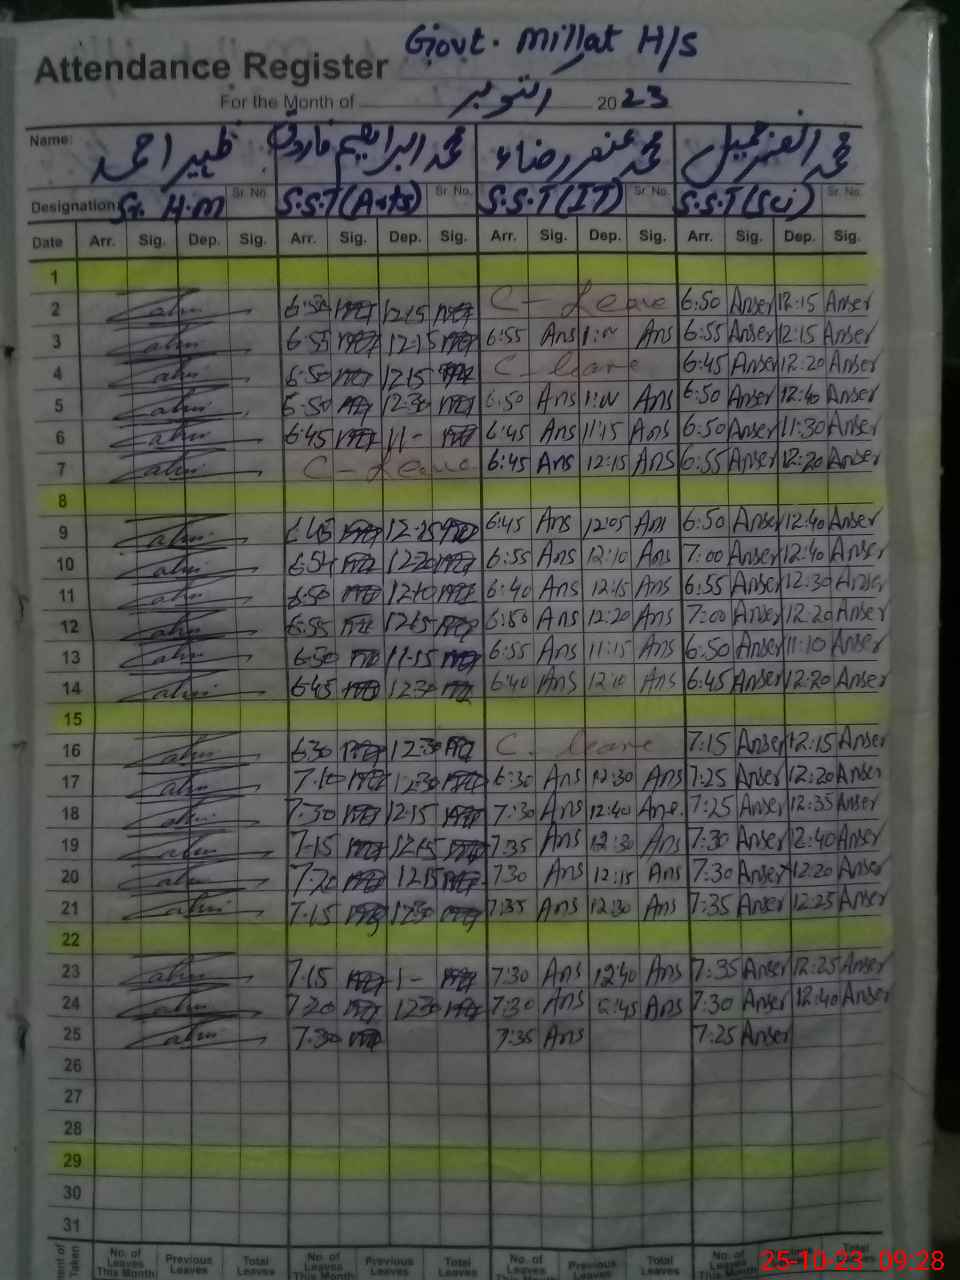 Govt. Millat H/S
Attendance Register
For the Month of اکتوبر 2023
Name: ظہیر احمد محمد ابراہیم فاروق محمد رضا محمد
Sr. No. Sr. No. Sr. No. Sr. No.
Designation: Sr. H.M S.S.T(Arts) S.S.T(IT) S.S.T(Sci)
Date Arr. Sig. Dep. Sig. Arr. Sig. Dep. Sig. Arr. Sig. Dep. Sig. Arr. Sig. Dep. Sig.
1
2 6:50 12:15 C - Leave 6:50 Anser 12:15 Anser
3 6:55 12:15 6:55 Ans 1:00 Ans 6:55 Anser 12:15 Anser
4 6:50 12:15 C - leave 6:45 Anser 12:20 Anser
5 6:50 12:30 6:50 Ans 1:00 Ans 6:50 Anser 12:40 Anser
6 6:45 11- 6:45 Ans 11:15 Ans 6:50 Anser 11:30 Anser
7 C - Leave 6:45 Ans 12:15 Ans 6:55 Anser 12:20 Anser
8
9 12:15 6:45 Ans 12:05 Ans 6:50 Anser 12:40 Anser
10 12:20 6:55 Ans 12:10 Ans 7:00 Anser 12:40 Anser
11 6:50 6:40 Ans 12:15 Ans 6:55 Anser 12:30 Anser
12 6:55 12:15 6:50 Ans 12:20 Ans 7:00 Anser 12:20 Anser
13 6:50 11:15 6:55 Ans 11:15 Ans 6:50 Anser 11:10 Anser
14 6:45 12:30 6:40 Ans 12:10 Ans 6:45 Anser 12:20 Anser
15
16 6:30 12:30 C - leave 7:15 Anser 12:15 Anser
17 7:10 12:30 6:30 Ans 12:30 Ans 7:25 Anser 12:20 Anser
18 7:30 12:15 7:30 Ans 12:40 Ans 7:25 Anser 12:35 Anser
19 7-15 12:15 7:35 Ans 12:30 Ans 7:30 Anser 12:40 Anser
20 7:20 12:15 7:30 Ans 12:15 Ans 7:30 Anser 12:20 Anser
21 7:15 12:30 7:35 Ans 12:30 Ans 7:35 Anser 12:25 Anser
22
23 7:15 1- 7:30 Ans 12:40 Ans 7:35 Anser 12:25 Anser
24 7:20 12:30 7:30 Ans 12:45 Ans 7:30 Anser 12:40 Anser
25 7:30 7:35 Ans 7:25 Anser
26
27
28
29
30
31
Taken No. of Leaves This Month Previous Leaves Total Leaves No. of Leaves This Month Previous Leaves Total Leaves No. of Leaves This Month Previous Leaves Total Leaves No. of Leaves
25-10-23 09:28